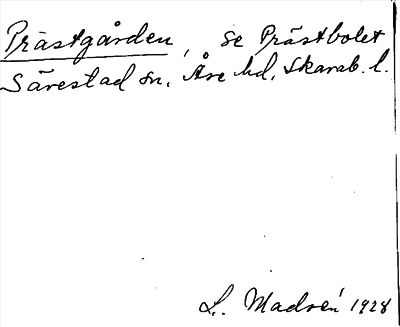 Prästgården, se Prästbolet
Särestad sn, Åse hd, Skarab. l.
L. Madsén 1928